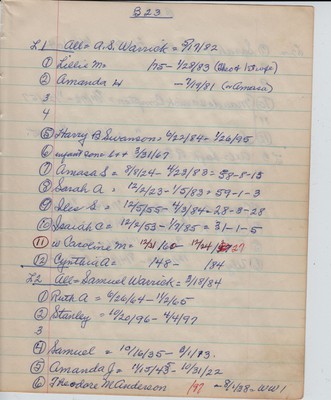 B23
L1 All = A.S. Warrick = 9/17/82
① Lillie M= /75 - 1/28/83 (Geo A 1st wife)
② Amanda W - 7/19/81 (w Amasia)
3
4
⑤ Harry B Swanson = 6/22/84 - 2/26/95
⑥ infant son s++ 3/31/67
⑦ Amasa S = 8/8/24 - 4/23/83 = 58-8-15
⑧ Sarah A = 12/2/23 - 1/5/83 = 59-1-3
⑨ Iles S = 12/5/55 - 4/3/84 = 28-3-28
⑩ Isariah C = 12/2/53 - 1/7/85 = 31-1-5
⑪ w Caroline M = 12/21/60 - 12/24/27
⑫ Cynthia A = /48 - /84
L2 All = Samuel Warrick = 3/18/84
① Ruth A = 6/26/64 - 1/2/65
② Stanley = 10/20/96 - 4/4/97
3
④ Samuel = 10/16/35 - 8/1/13
⑤ Amanda J = 11/15/43 - 10/31/22
⑥ Theodore M Anderson /97 - 8/1/38 - WW1